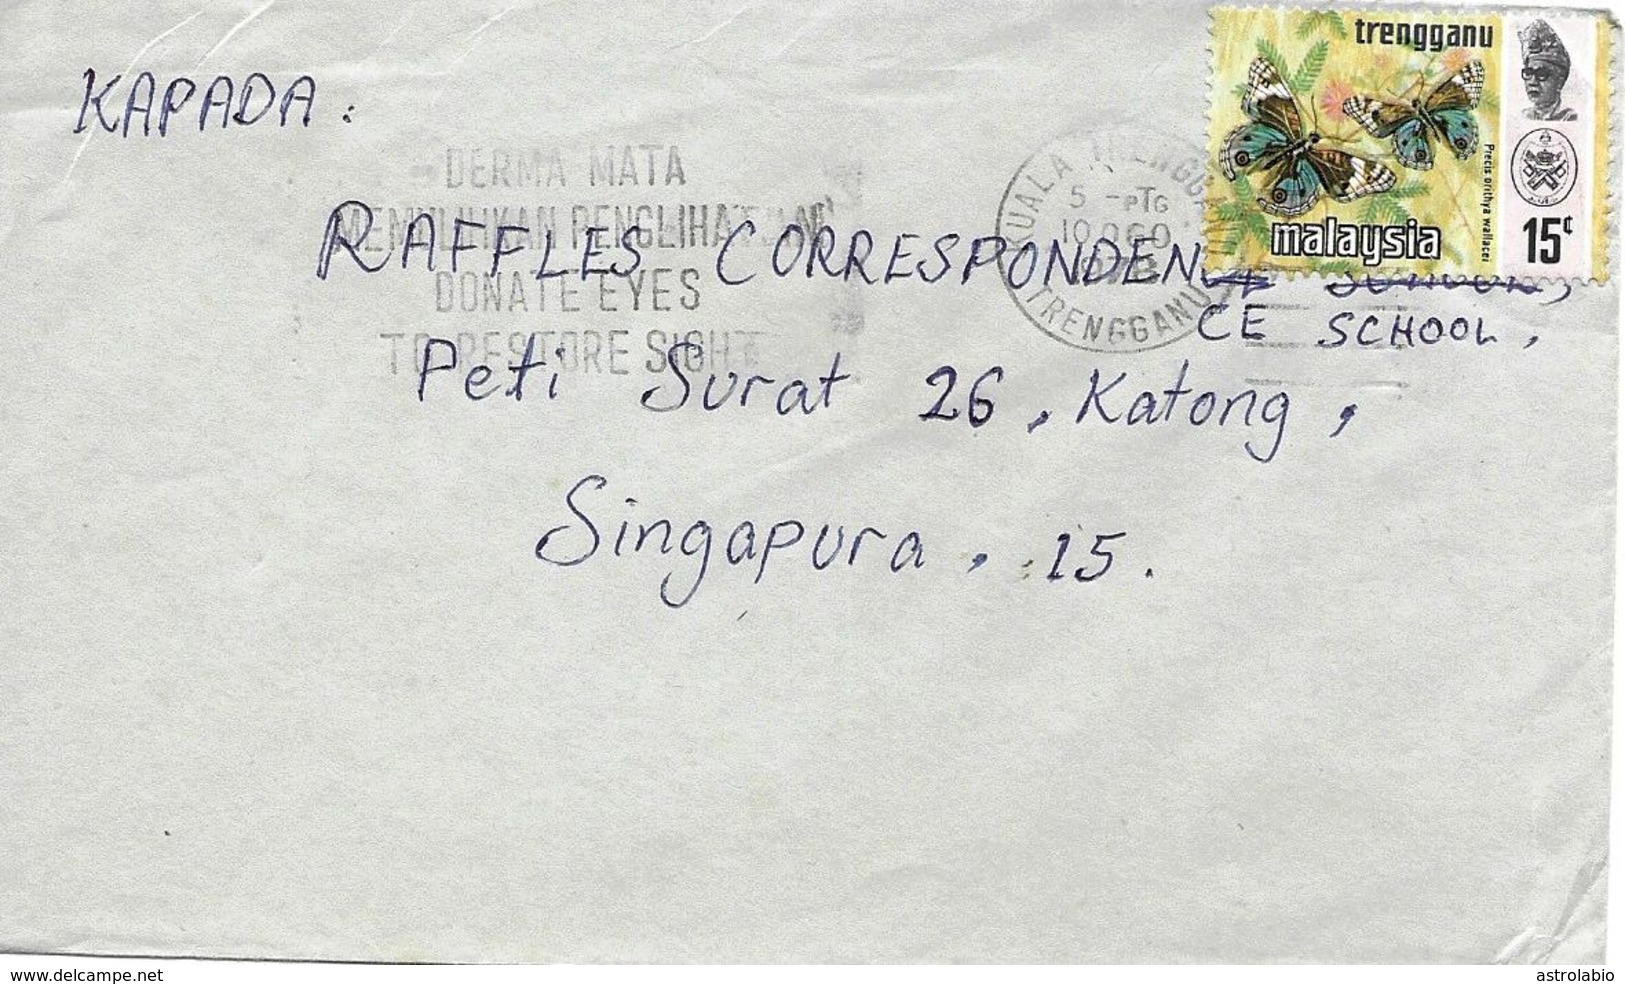 trengganu
KAPADA:
DERMA MATA
MEMULIHKAN PENGLIHATAN
DONATE EYES
TO RESTORE SIGHT
KUALA TRENGGANU
5 -PTG
10 OGO
TRENGGANU
Precis orithya wallacei
malaysia
15¢
RAFFLES CORRESPONDEN
CE SCHOOL,
Peti Surat 26, Katong,
Singapura, 15.
www.delcampe.net
astrolabio